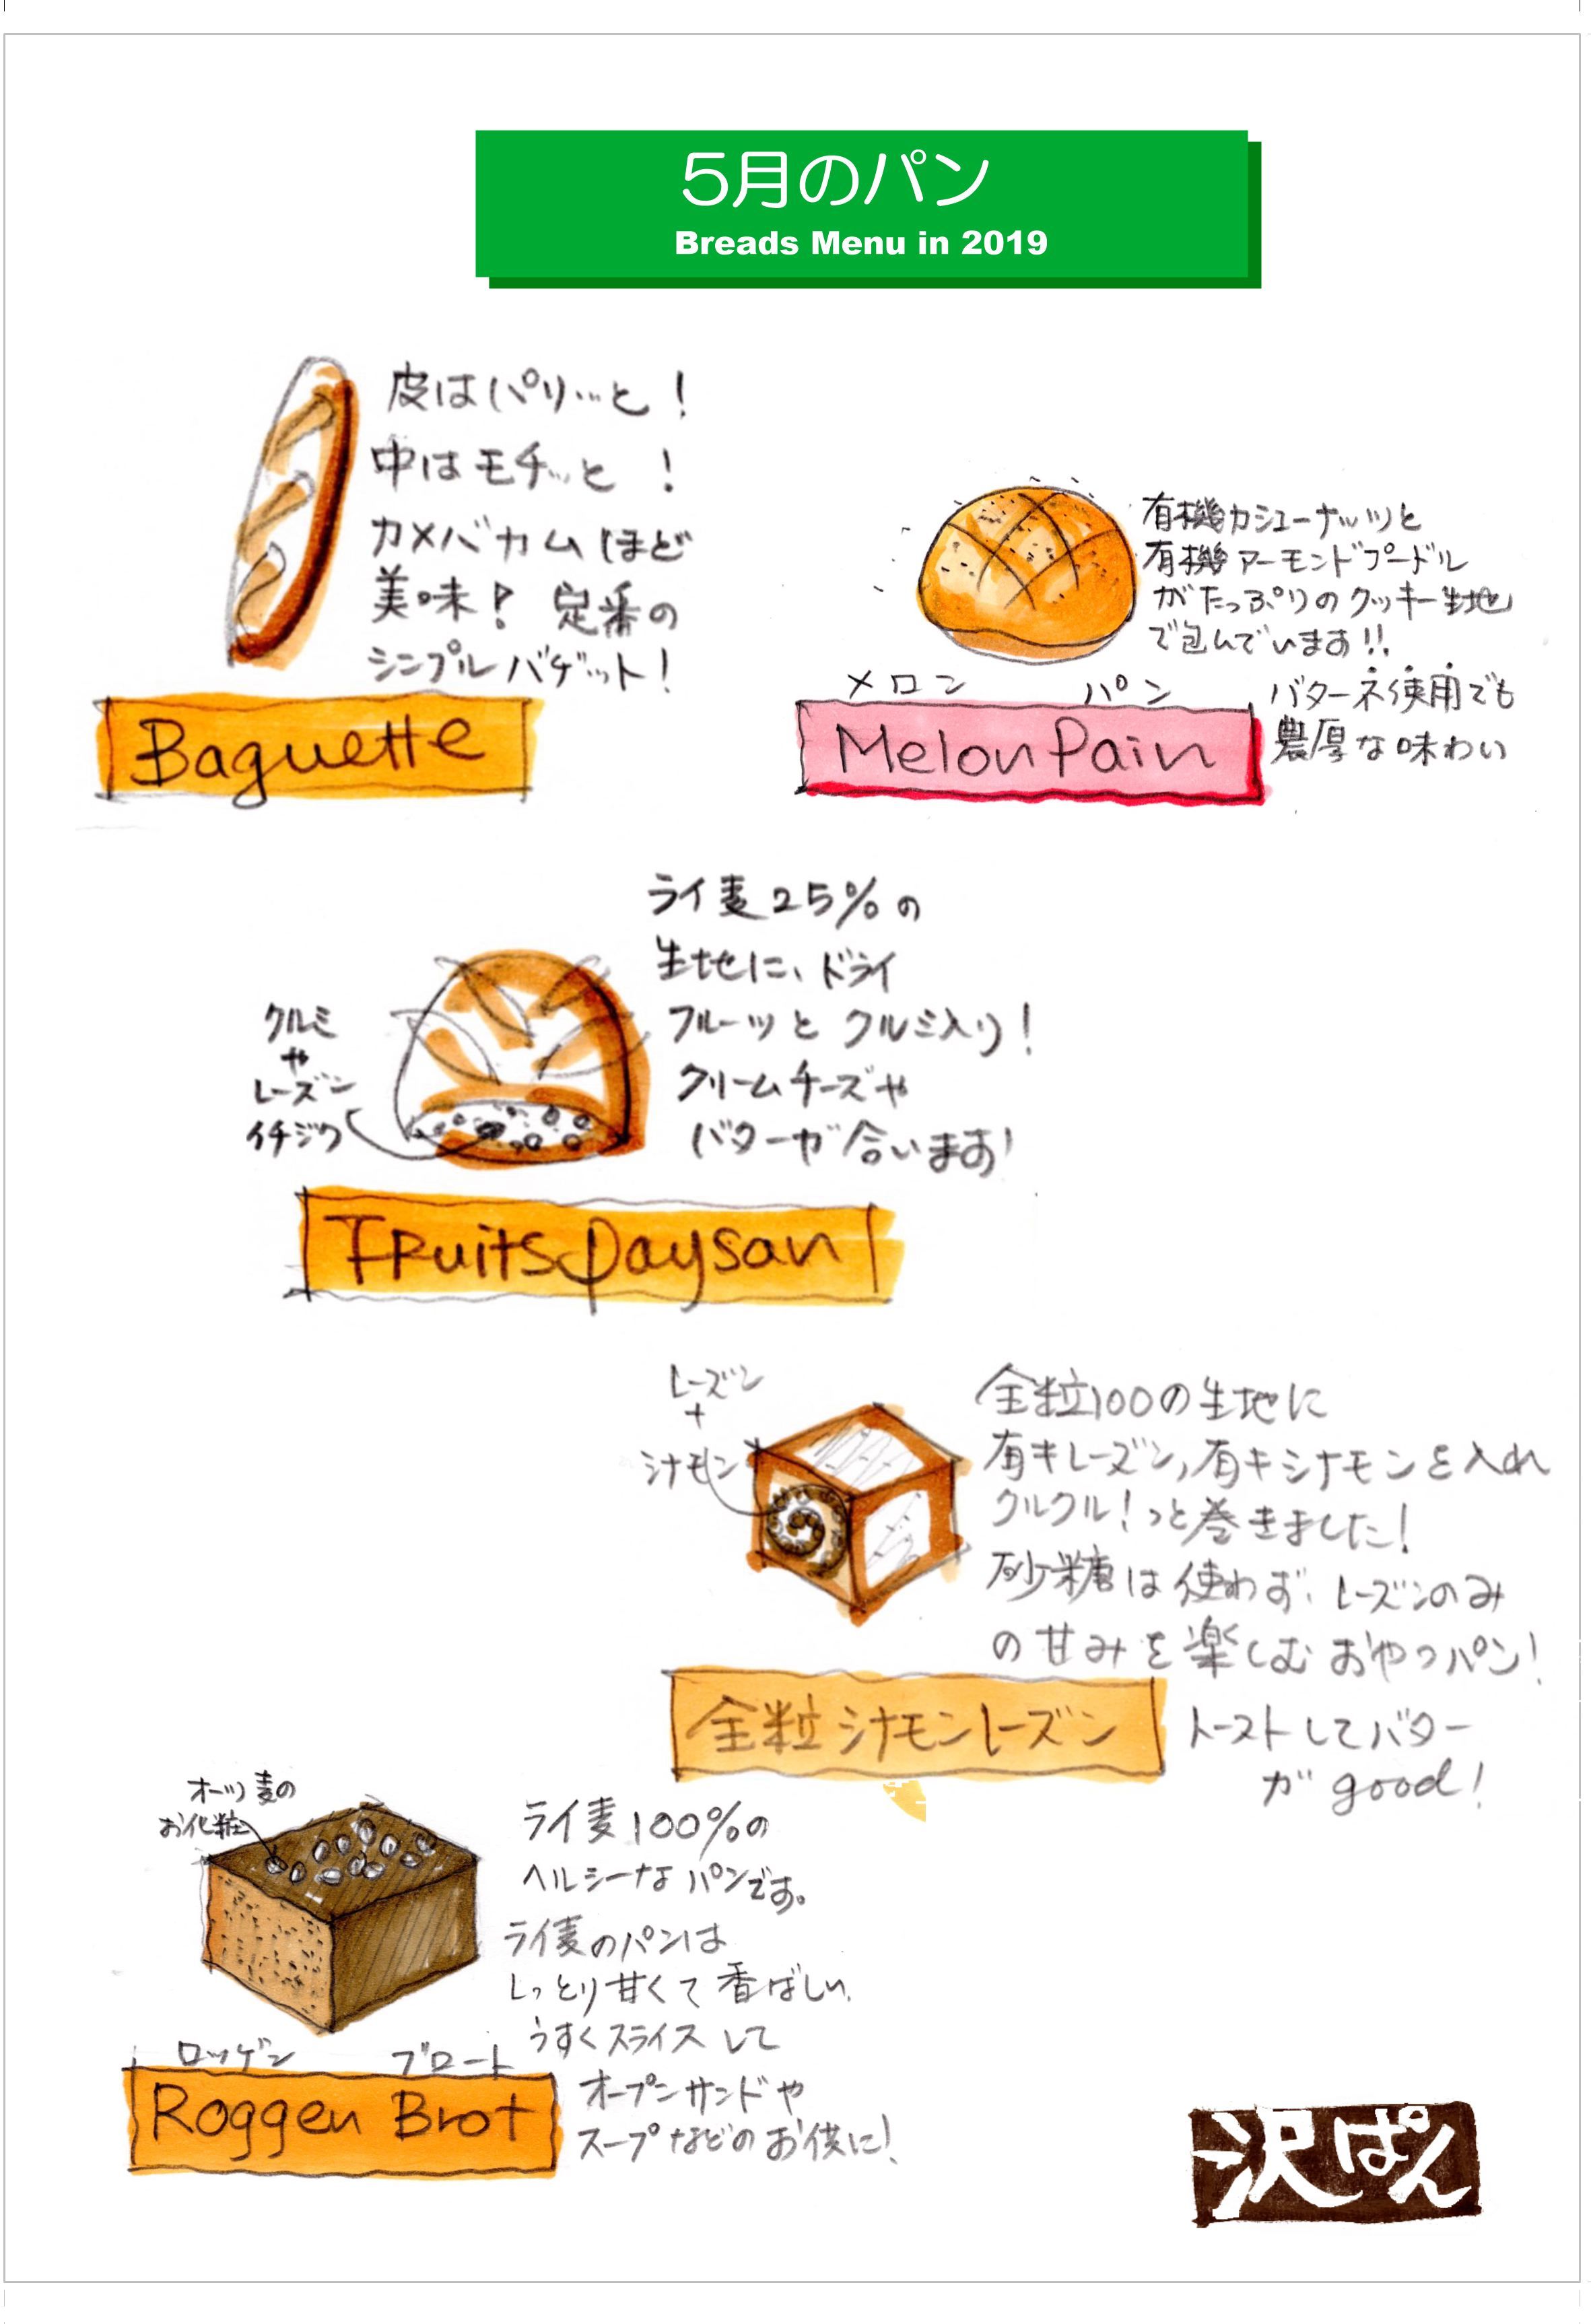 5月のパン
Breads Menu in 2019
皮はパリッと！
中はモチッと！
カメバカムほど
美味！定番の
シンプルバゲット！
Baguette
有機カシューナッツと
有機アーモンドプードル
がたっぷりのクッキー生地
で包んでいます!!
メロン パン
バターネ使用でも
濃厚な味わい
Melon Pain
ライ麦25%の
生地に、ドライ
フルーツとクルミ入り！
クリームチーズや
バターが合います！
クルミ
や
レーズン
イチジク
Fruits paysan
レーズン
+
シナモン
全粒100の生地に
有キレーズン,有キシナモンを入れ
クルクル！っと巻きました！
砂糖は使わず、レーズンのみ
の甘みを楽しむおやつパン！
全粒シナモンレーズン
トーストしてバター
が good!
オーツ麦の
お化粧
ライ麦100%の
ヘルシーなパンです。
ライ麦のパンは
しっとり甘くて香ばしい.
うすくスライスして
オープンサンドや
スープなどのお供に！
ロッゲン ブロート
Roggen Brot
沢ぱん